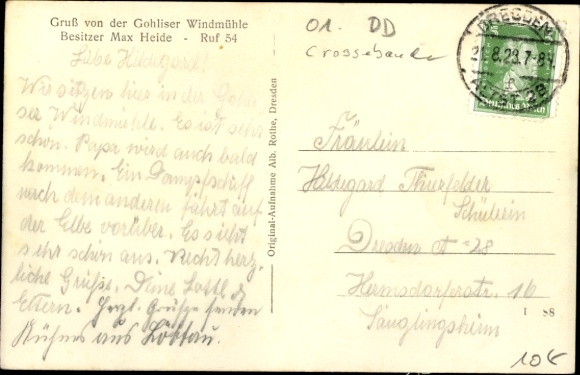 Gruß von der Gohliser Windmühle
Besitzer Max Heide - Ruf 54
Liebe Hildegard!
Wir sitzen hier in der Gohli
ser Windmühle. Es ist sehr
schön. Papa wird auch bald
kommen. Ein Dampfschiff
nach dem anderen fährt auf
der Elbe vorüber. Es sieht
sehr schön aus. Recht herz-
liche Grüße. Deine Lotte &
Eltern. Herzl. Grüße senden
Kühns aus Löbtau.
Original-Aufnahme Alb. Rothe, Dresden
01. DD
Cossebaude
DRESDEN
8.29.7-8V.
ALTST. 28
Fräulein
Hildegard Thurfelder
Schülerin
Dresden A-28
Hermsdorferstr. 16
Säuglingsheim
1 88
10€